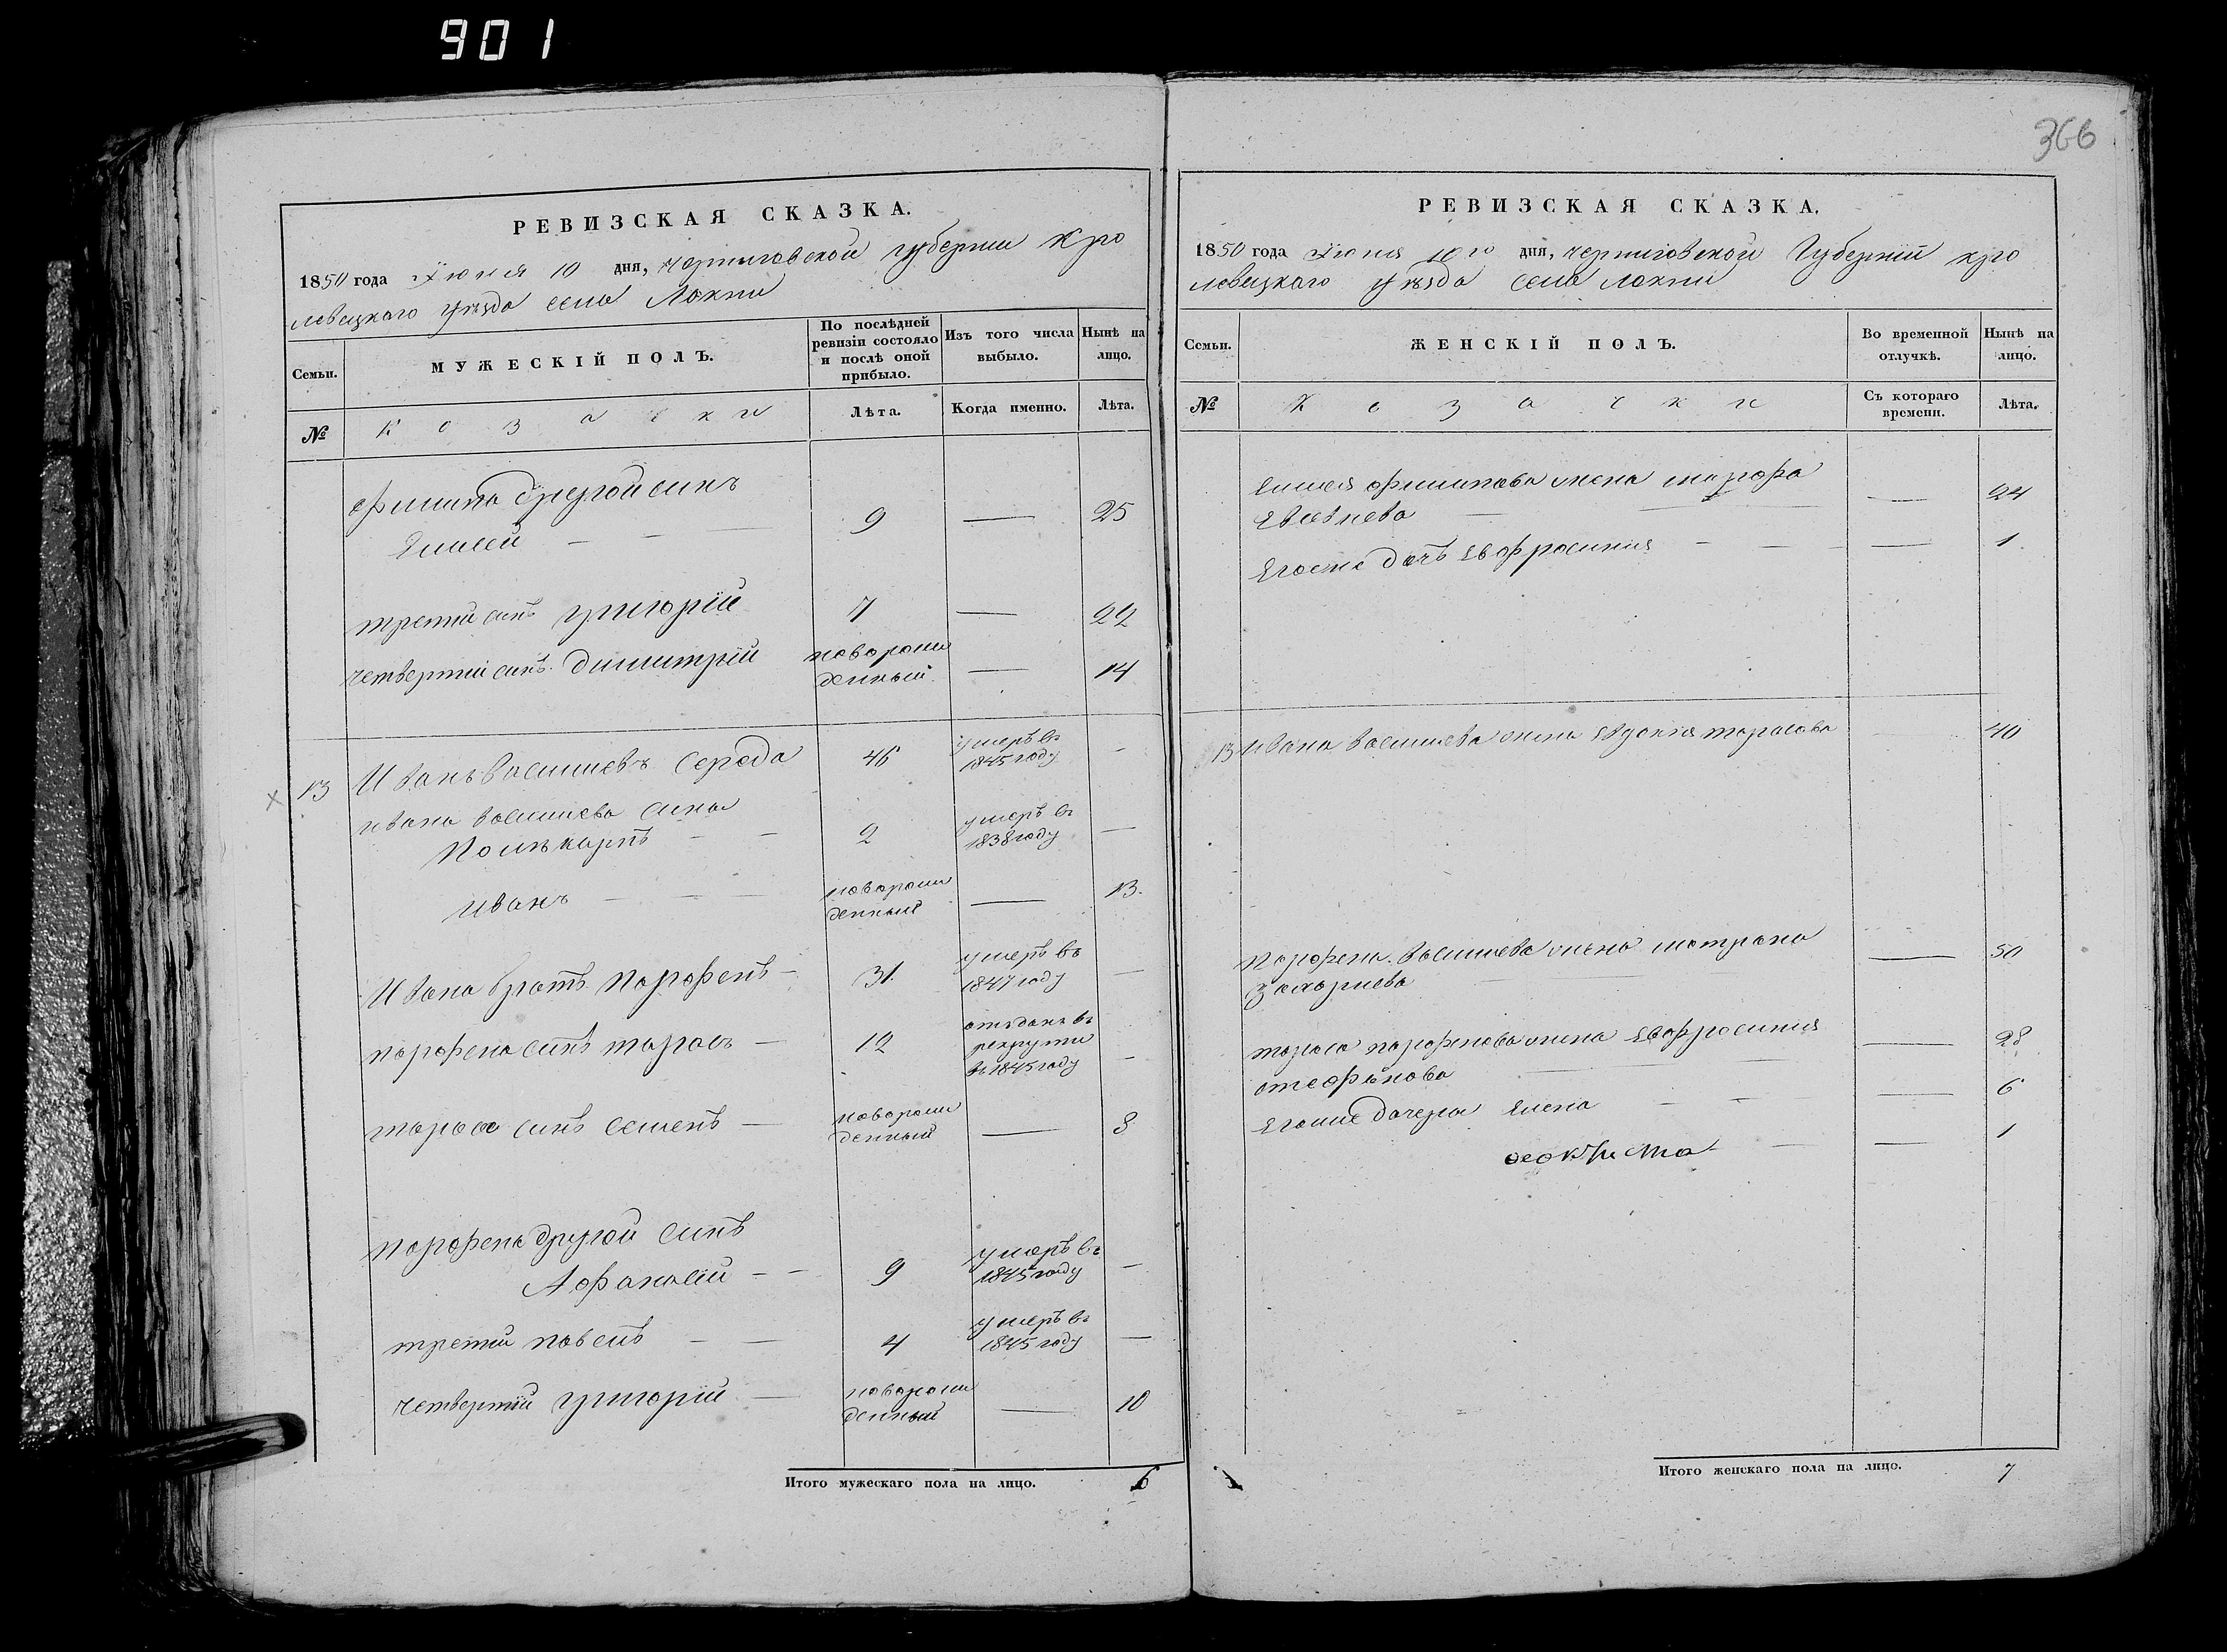 901
366
РЕВИЗСКАЯ СКАЗКА.
1850 года Июня 10 дня, Черниговской губернии Кро
левецкаго уѣзда села Локни
Семьи.
МУЖЕСКІЙ ПОЛЪ.
По послѣдней ревизіи состояло и послѣ оной прибыло.
Изъ того числа выбыло.
Нынѣ на лицо.
№
Козачки
Лѣта.
Когда именно.
Лѣта.
Филипа другой синъ
Елисей — — 9 — 25
третий синъ Григорій 7 — 22
четвертий синъ Димитрій новорож
денный — 14
13 Иванъ Василиевъ Середа 46 умеръ въ
1845 году —
Ивана Василиева сини
Поликарпъ — — 2 умеръ въ
1838 году —
Иванъ — — новорож
денный — 13.
Ивана братъ Парфенъ — 31. умеръ въ
1847 году —
Парфена синъ Тарасъ — 12 отъданъ въ
рекрути
въ 1845 году —
Тараса синъ Семенъ — новорож
денный — 8
Парфена другой синъ
Афанасій — — 9 умеръ въ
1845 году —
третий Павелъ — — 4 умеръ въ
1845 году —
четвертий Григорій — новорож
денный — 10
Итого мужескаго пола на лицо. 6
РЕВИЗСКАЯ СКАЗКА.
1850 года Июня 10го дня, Черниговской Губерніи Кро
левецкаго уѣзда села Локни
Семьи.
ЖЕНСКІЙ ПОЛЪ.
Во временной отлучкѣ.
Нынѣ на лицо.
№
Козачки
Съ котораго времени.
Лѣта.
Елисея Филипова жена Марфа
Евсѣиева — — — 24
Егоже дочъ Евфросиния — — — 1.
13 Ивана Василиева жена Евдокія Тарасова 40
Парфена Василиева жена Матрона
Захариева — — 50
Тараса Парфенова жена Евфросиния
Стефанова — — 28
Егоже дочери Елена — — — 6
Феоктиста — — 1
Итого женскаго пола на лицо. 7